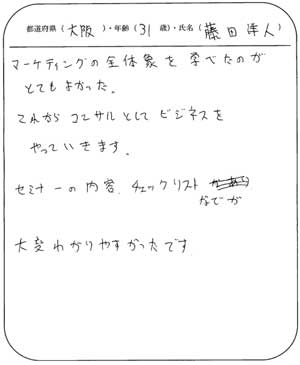 都道府県（大阪）・年齢（31歳）・氏名（藤田洋人）
マーケティングの全体象を学べたのが
とてもよかった。
これからコンサルとしてビジネスを
やっていきます。
セミナーの内容、チェックリスト
などが
大変わかりやすかったです